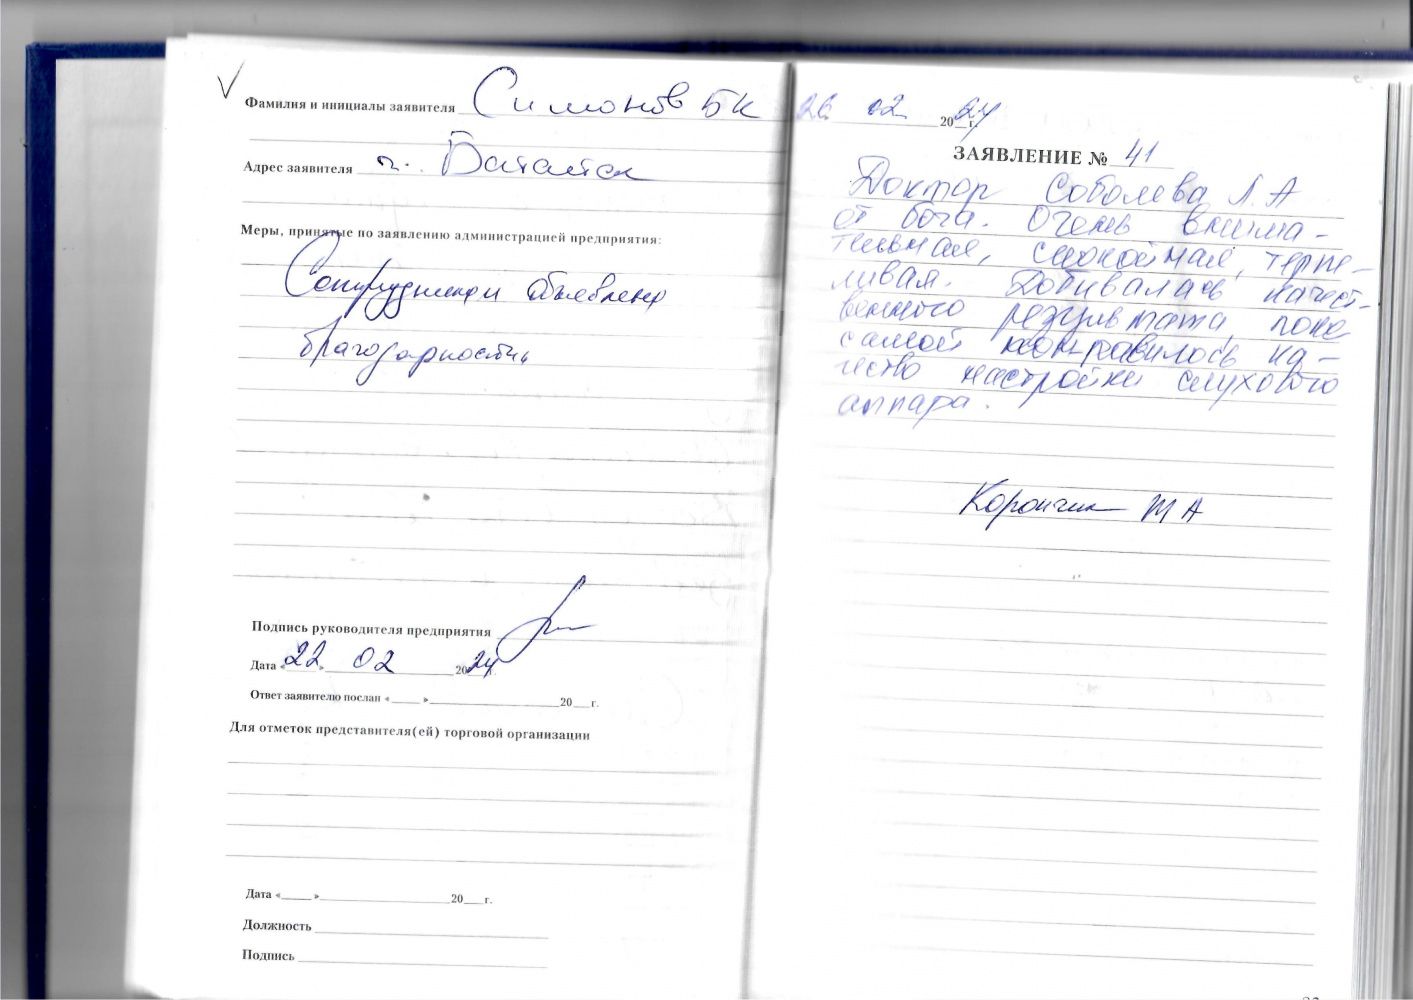 Фамилия и инициалы заявителя Симонов БК
Адрес заявителя г. Батайск
Меры, принятые по заявлению администрацией предприятия:
Сотрудникам объявлено
благодарности
Подпись руководителя предприятия
Дата «22» 02 2024
Ответ заявителю послан «____» ____ 20__г.
Для отметок представителя(ей) торговой организации
Дата «____» ____ 20__г.
Должность
Подпись
26 02 2024 г.
ЗАЯВЛЕНИЕ № 41
Доктор Соболева Л.А
от бога. Очень внима-
тельная, спокойная, терпе-
ливая. Добивалась качест-
венного результата, пока
самой не понравилось ка-
чество настройки слухового
аппара.
ТА